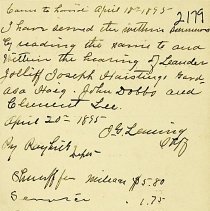 Came to hand Apr 10 1895
2179
I have served the within Summons
by reading the same to and
within the hearing of Leander
Jolliff Joseph Haistings Gard
asa Hoig. John Dobbs and
Clement Lee.
April 20th 1895
J G Leming
By
Dept
Sheriff fee $5.80
Service 1.75